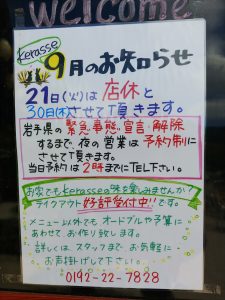 welcome
kerasse
9月のお知らせ
21日(火)は 店休と
30日(木)させて頂きます。
岩手県の緊急事態宣言解除
するまで、夜の営業は予約制に
させて頂きます。
当日予約は2時までにTEL下さい。
お家でもkerasseの味を楽しみませんか?
テイクアウト好評受付中!!です。
メニュー以外でもオードブルや予算に
あわせてお作り致します。
詳しくは、スタッフまでお気軽に
お声掛けして下さい。
0192-22-7828